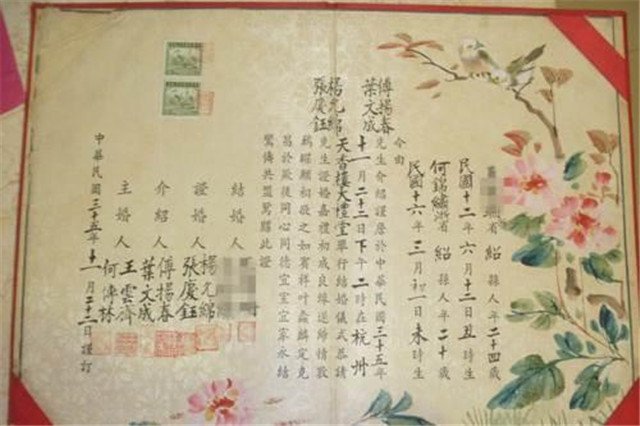 省紹縣人年二十四歲
民國十二年六月十二日丑時生
何錦繡浙省紹縣人年二十歲
民國十六年三月初一日未時生
今由
傅揚春
葉文成
先生介紹謹詹於中華民國三十五年
十一月二十三日下午二時在杭州
天香樓大禮堂舉行結婚儀式恭請
楊允綿
張慶鈺
先生證婚嘉禮初成良緣遂締情敦
鶼鰈願相敬之如賓祥叶螽麟定克
昌於厥後同心同德宜室宜家永結
鸞儔共盟鴛牒此證
結婚人
證婚人
楊允綿
張慶鈺
介紹人
傅揚春
葉文成
主婚人
王雲齋
何傳林
中華民國三十五年十一月二十三日謹訂